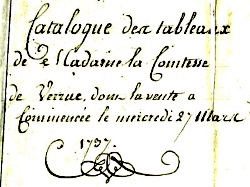 Catalogue des tableaux
de Madame la Comtesse
de Verrue, dont la vente a
Commencée le mercredi 27 Mars
1737.